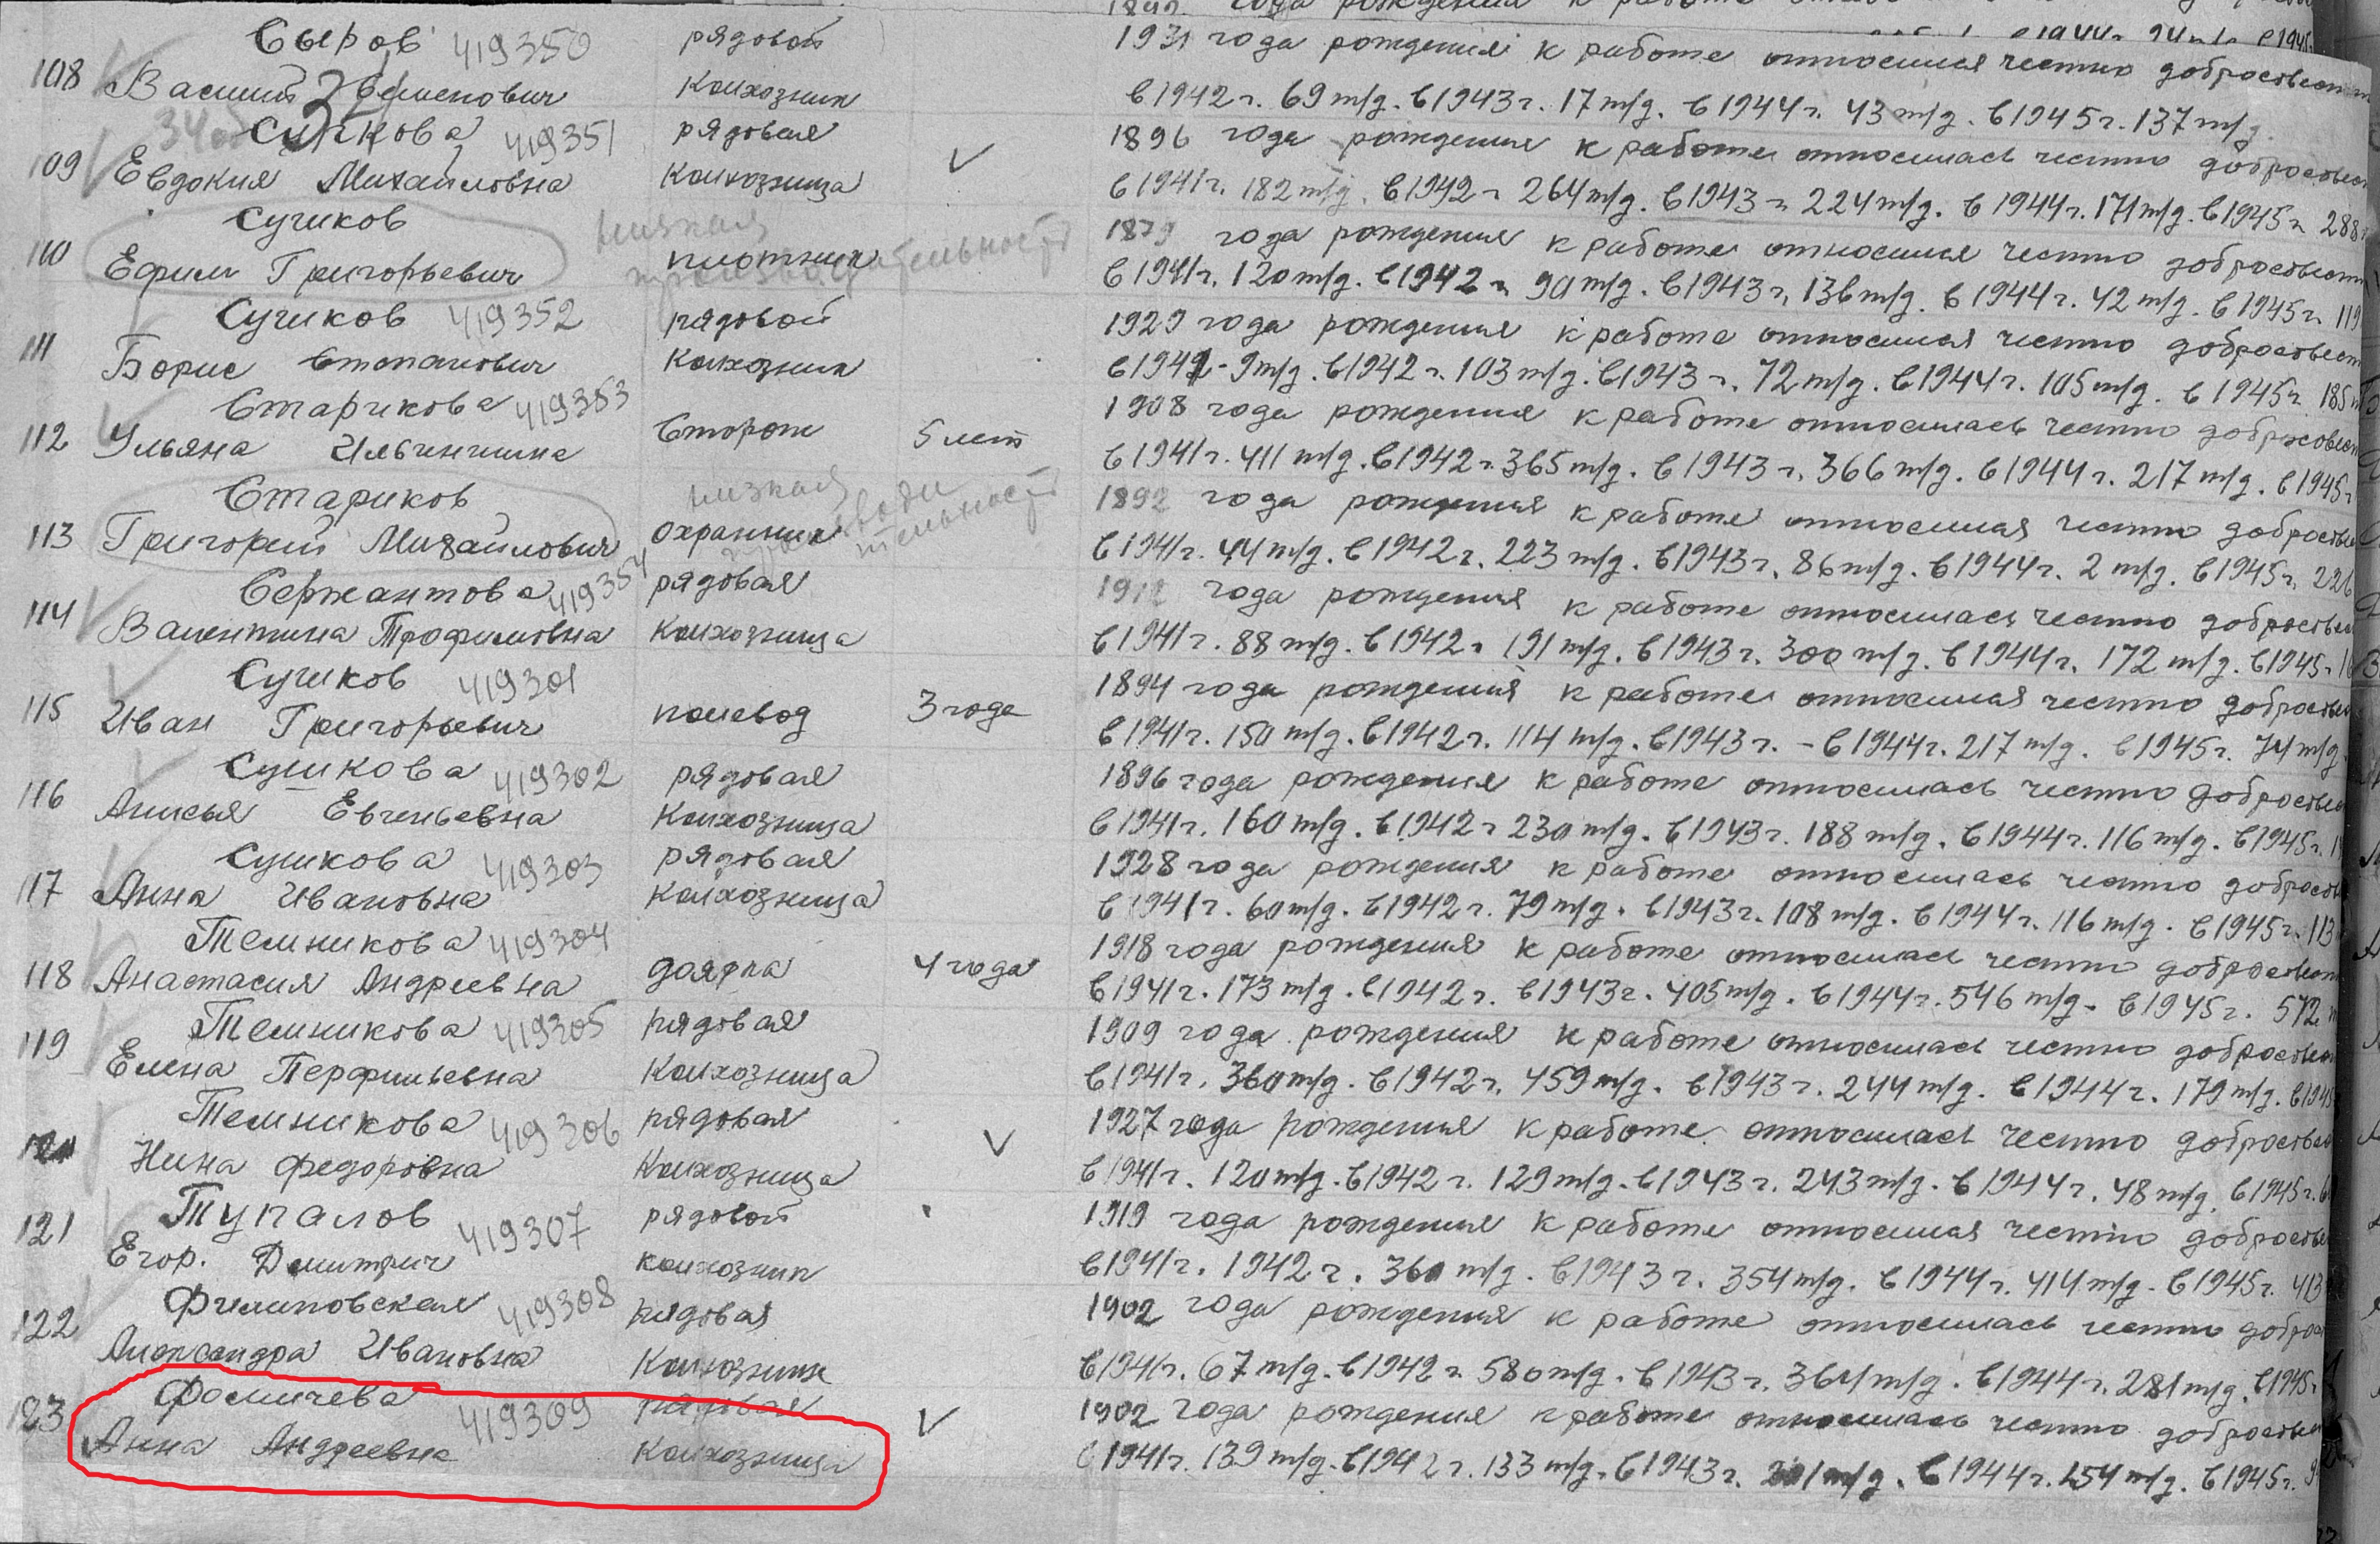 Сыров 419350 рядовой 1931 года рождения к работе относился честно добросовестн
108 Василий Семенович колхозник в 1942 г. 69 т/д. в 1943 г. 17 т/д. в 1944 г. 43 т/д. в 1945 г. 137 т/д.
Сучкова 419351 рядовая 1896 года рождения к работе относилась честно добросовес
109 Евдокия Михайловна колхозница в 1941 г. 182 т/д. в 1942 г. 264 т/д. в 1943 г. 224 т/д. в 1944 г. 171 т/д. в 1945 г. 288
Сучков низкая производительность 1879 года рождения к работе относился честно добросовестн
110 Ефим Григорьевич плотник в 1941 г. 120 т/д. в 1942 г. 90 т/д. в 1943 г. 136 т/д. в 1944 г. 42 т/д. в 1945 г. 119
Сучков 419352 рядовой 1929 года рождения к работе относился честно добросовест
111 Борис Степанович колхозник в 1941 - 9 т/д. в 1942 г. 103 т/д. в 1943 г. 72 т/д. в 1944 г. 105 т/д. в 1945 г. 185
Старикова 419353 1908 года рождения к работе относилась честно добросовес
112 Ульяна Ильинична Сторож 5 лет в 1941 г. 411 т/д. в 1942 г. 365 т/д. в 1943 г. 366 т/д. в 1944 г. 217 т/д. в 1945 г.
Стариков низкая производительность 1892 года рождения к работе относился честно добросовес
113 Григорий Михайлович охранник в 1941 г. 44 т/д. в 1942 г. 223 т/д. в 1943 г. 86 т/д. в 1944 г. 2 т/д. в 1945 г. 226
Сержантова 419354 рядовая 1912 года рождения к работе относилась честно добросовес
114 Валентина Трофимовна колхозница в 1941 г. 88 т/д. в 1942 г. 191 т/д. в 1943 г. 300 т/д. в 1944 г. 172 т/д. в 1945 г.
Сучков 419301 1894 года рождения к работе относился честно добросовес
115 Иван Григорьевич полевод 3 года в 1941 г. 150 т/д. в 1942 г. 114 т/д. в 1943 г. - в 1944 г. 217 т/д. в 1945 г. 74 т/д
Сушкова 419302 рядовая 1896 года рождения к работе относилась честно добросовес
116 Анисья Евгеньевна колхозница в 1941 г. 160 т/д. в 1942 г. 230 т/д. в 1943 г. 188 т/д. в 1944 г. 116 т/д. в 1945 г.
Сушкова 419303 рядовая 1928 года рождения к работе относилась честно добросов
117 Анна Ивановна колхозница в 1941 г. 60 т/д. в 1942 г. 79 т/д. в 1943 г. 108 т/д. в 1944 г. 116 т/д. в 1945 г. 113
Темникова 419304 1918 года рождения к работе относилась честно добросовест
118 Анастасия Андреевна доярка 4 года в 1941 г. 173 т/д. в 1942 г. в 1943 г. 405 т/д. в 1944 г. 546 т/д. в 1945 г. 572
Темникова 419305 рядовая 1909 года рождения к работе относилась честно добросовес
119 Елена Перфильевна колхозница в 1941 г. 360 т/д. в 1942 г. 459 т/д. в 1943 г. 244 т/д. в 1944 г. 179 т/д. в 1945
Темникова 419306 рядовая 1927 года рождения к работе относилась честно добросовес
120 Нина Федоровна колхозница в 1941 г. 120 т/д. в 1942 г. 129 т/д. в 1943 г. 243 т/д. в 1944 г. 48 т/д. в 1945 г.
Тупалов 419307 рядовой 1919 года рождения к работе относился честно добросовес
121 Егор. Дмитрич колхозник в 1941 г. 1942 г. 360 т/д. в 1943 г. 354 т/д. в 1944 г. 414 т/д. в 1945 г. 413
Филиповская 419308 рядовая 1902 года рождения к работе относилась честно доброс
122 Александра Ивановна колхозница в 1941 г. 67 т/д. в 1942 г. 580 т/д. в 1943 г. 364 т/д. в 1944 г. 281 т/д. в 1945 г.
Фомичева 419309 рядовая 1902 года рождения к работе относилась честно добросовес
123 Анна Андреевна колхозница в 1941 г. 139 т/д. в 1942 г. 133 т/д. в 1943 г. 201 т/д. в 1944 г. 154 т/д. в 1945 г.